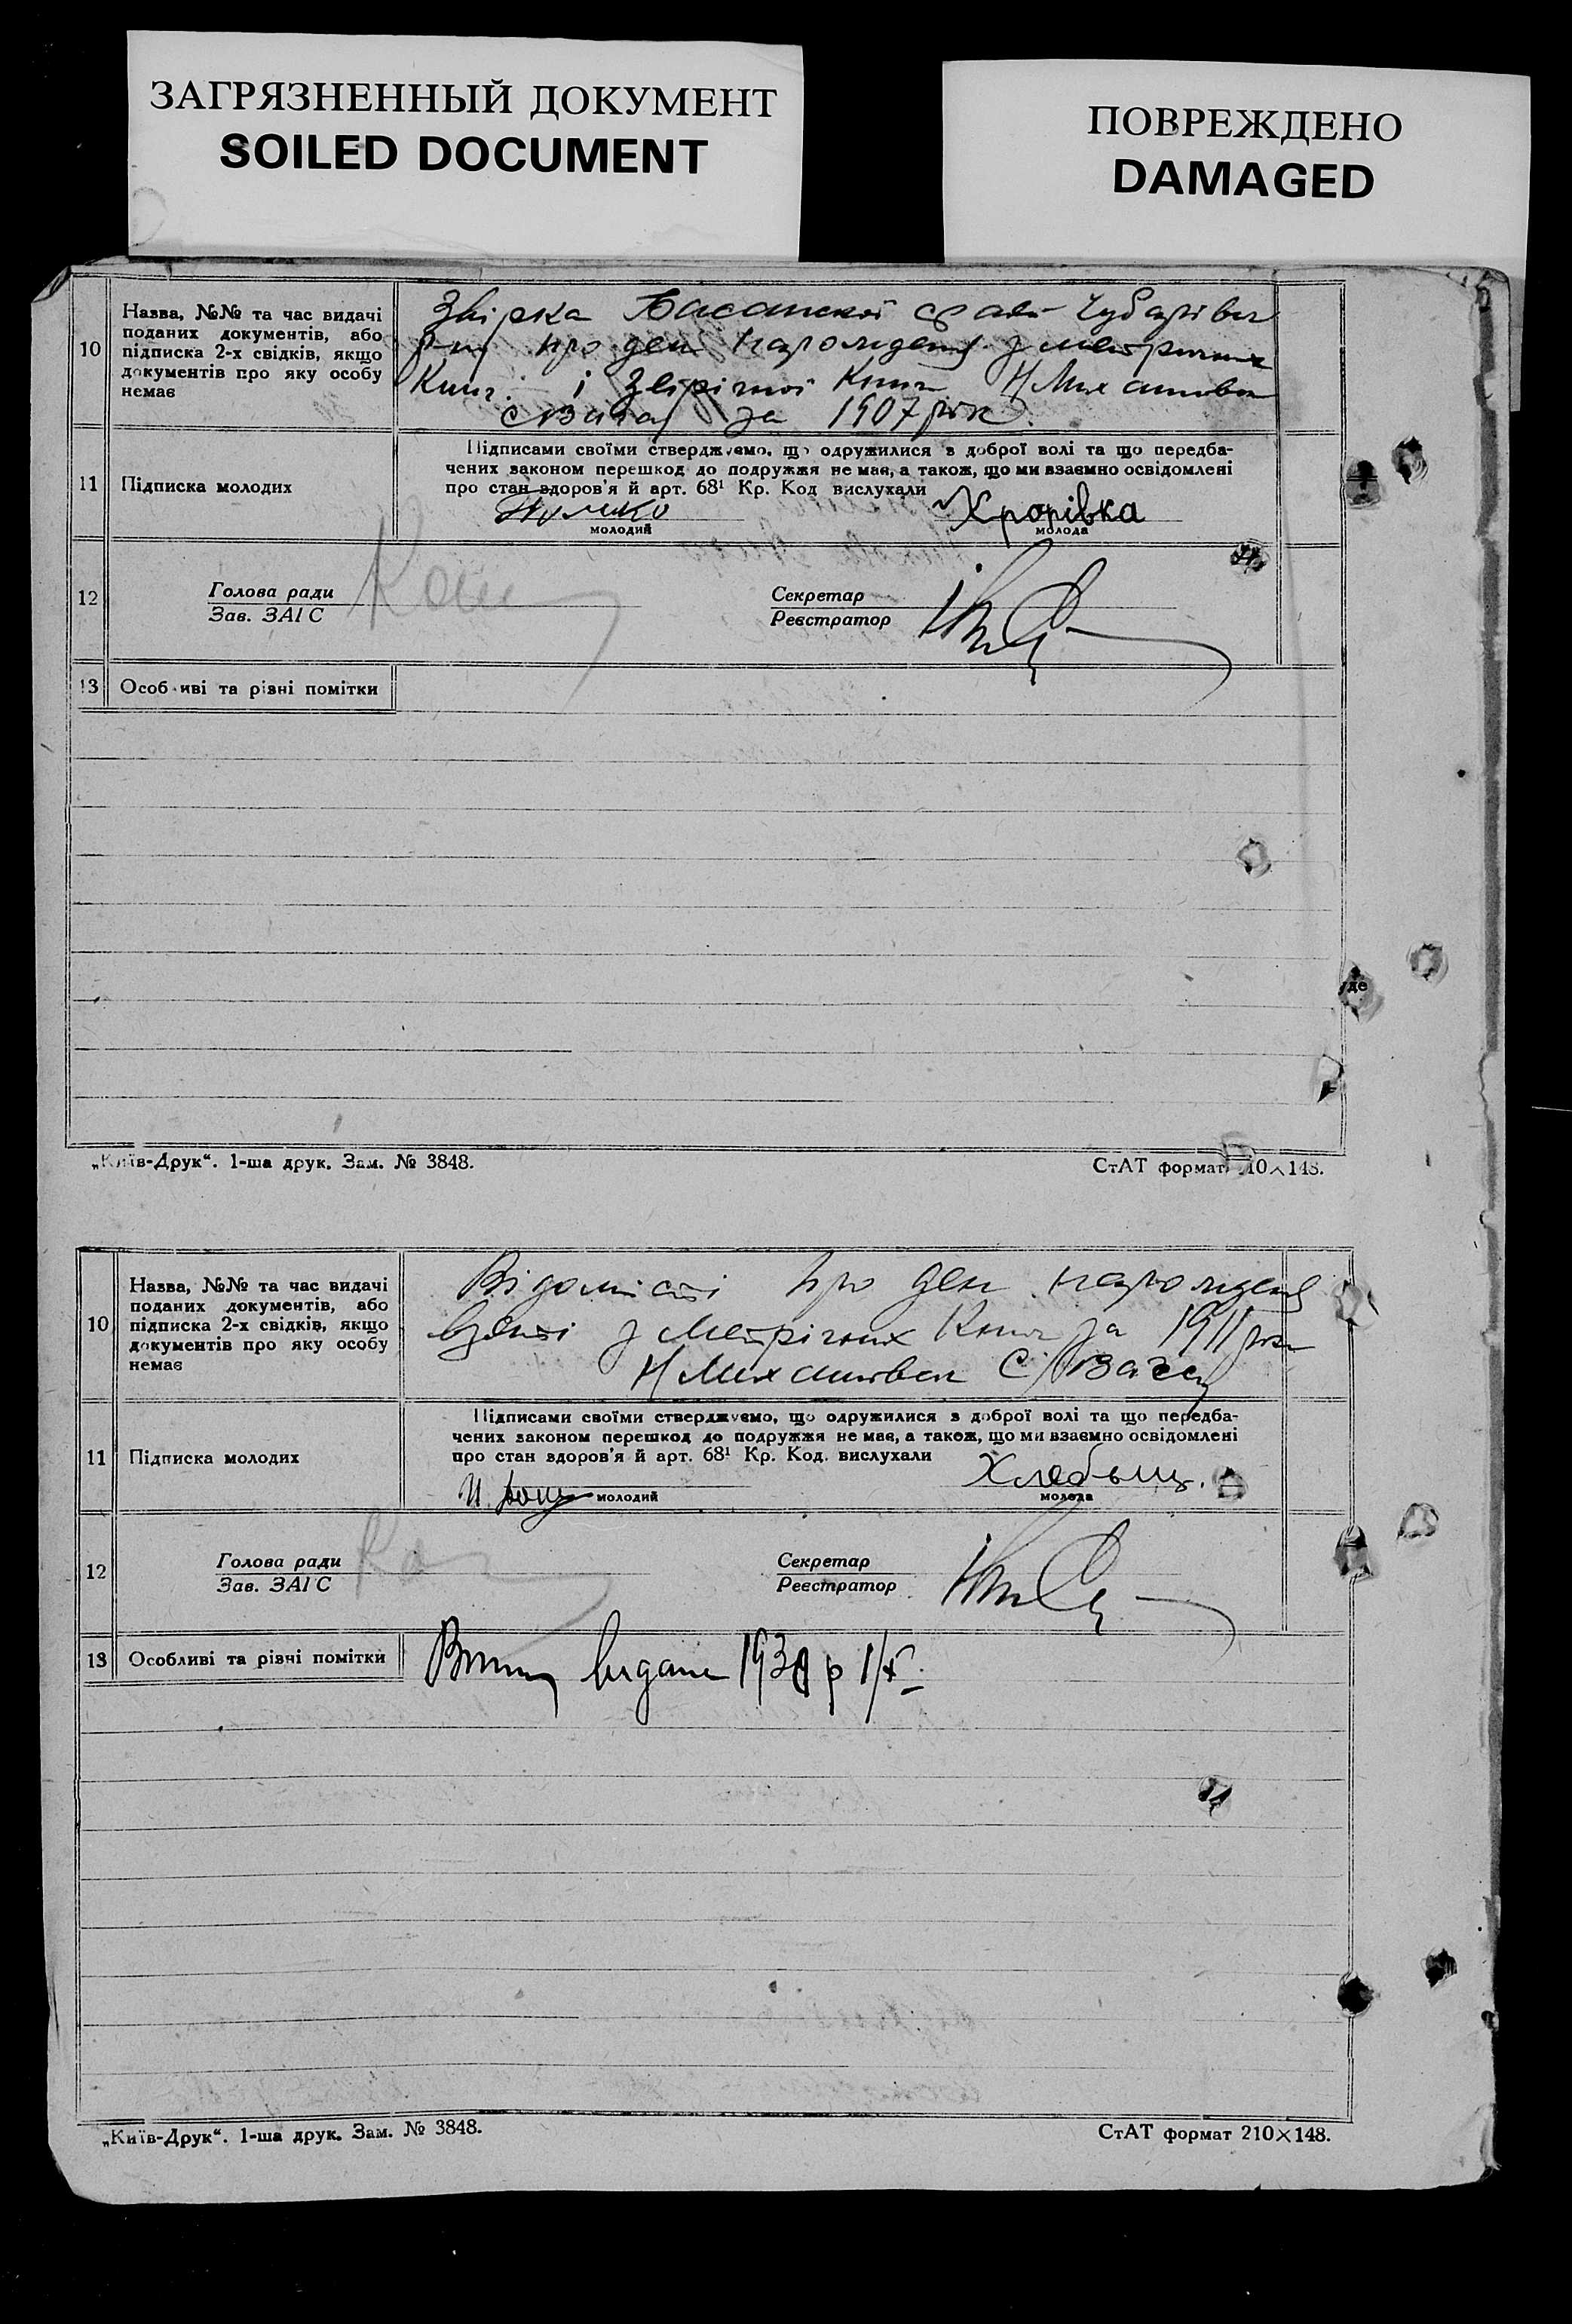 ЗАГРЯЗНЕННЫЙ ДОКУМЕНТ
SOILED DOCUMENT
ПОВРЕЖДЕНО
DAMAGED
10
Назва, №№ та час видачі
поданих документів, або
підписка 2-х свідків, якщо
документів про яку особу
немає
про ден народження з
Книг. і Книги
за 1907 рік.
11
Підписка молодих
Підписами своїми стверджуємо, що одружилися з доброї волі та що передба-
чених законом перешкод до подружжя не має, а також, що ми взаємно освідомлені
про стан здоров'я й арт. 68¹ Кр. Код вислухали
молодий
молода
12
Голова ради
Зав. ЗАГС
Секретар
Реєстратор
13
Особ иві та різні помітки
де
„Київ-Друк“. 1-ша друк. Зам. № 3848.
СтАТ формат 210×148.
10
Назва, №№ та час видачі
поданих документів, або
підписка 2-х свідків, якщо
документів про яку особу
немає
Відомісті про ден народження
взяті з Метрічних Книг за 1911 рік
11
Підписка молодих
Підписами своїми стверджуємо, що одружилися з доброї волі та що передба-
чених законом перешкод до подружжя не має, а також, що ми взаємно освідомлені
про стан здоров'я й арт. 68¹ Кр. Код. вислухали
молодий
молода
12
Голова ради
Зав. ЗАГС
Секретар
Реєстратор
13
Особливі та різні помітки
„Київ-Друк“. 1-ша друк. Зам. № 3848.
СтАТ формат 210×148.